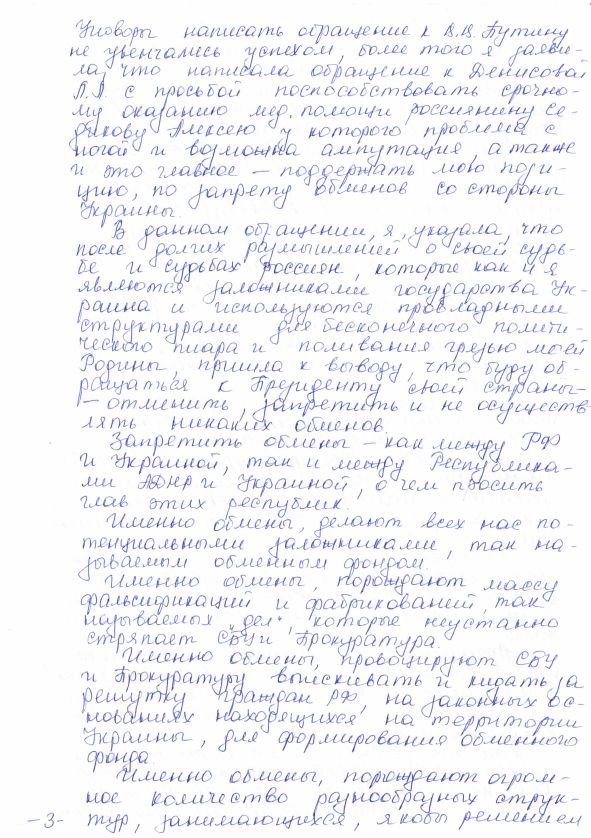 Уговоры написать обращение к В.В. Путину
не увенчались успехом, более того я заяви-
ла, что написала обращение к Денисовой
Л.Л. с просьбой поспособствовать срочно-
му оказанию мед. помощи россиянину Се-
дикову Алексею у которого проблема с
ногой и возможна ампутация, а также
и это главное — поддержать мою пози-
цию, по запрету обменов со стороны
Украины.
В данном обращении, я, указала, что
после долгих размышлений о своей судь-
бе и судьбах россиян, которые как и я
являются заложниками государства Ук-
раина и используются провладными
структурами для бесконечного полити-
ческого пиара и поливания грязью моей
Родины, пришла к выводу, что буду об-
ращаться к Президенту своей страны
— отменить, запретить и не осуществ
лять никаких обменов.
Запретить обмены — как между РФ
и Украиной, так и между Республика-
ми ЛДНР и Украиной, о чем просить
глав этих республик.
Именно обмены, делают всех нас по-
тенциальными заложниками, так на-
зываемым обменным фондом.
Именно обмены, порождают массу
фальсификаций и фабрикований, так
называемых „дел", которые неустанно
стряпает СБУ и Прокуратура.
Именно обмены, провоцируют СБУ
и Прокуратуру выискивать и кидать за
решутку граждан РФ, на законных ос-
нованиях находящихся, на территории
Украины, для формирования обменного
фонда.
Именно обмены, порождают огром-
ное количество разнообразных струк-
-3- тур, занимающихся, якобы решением